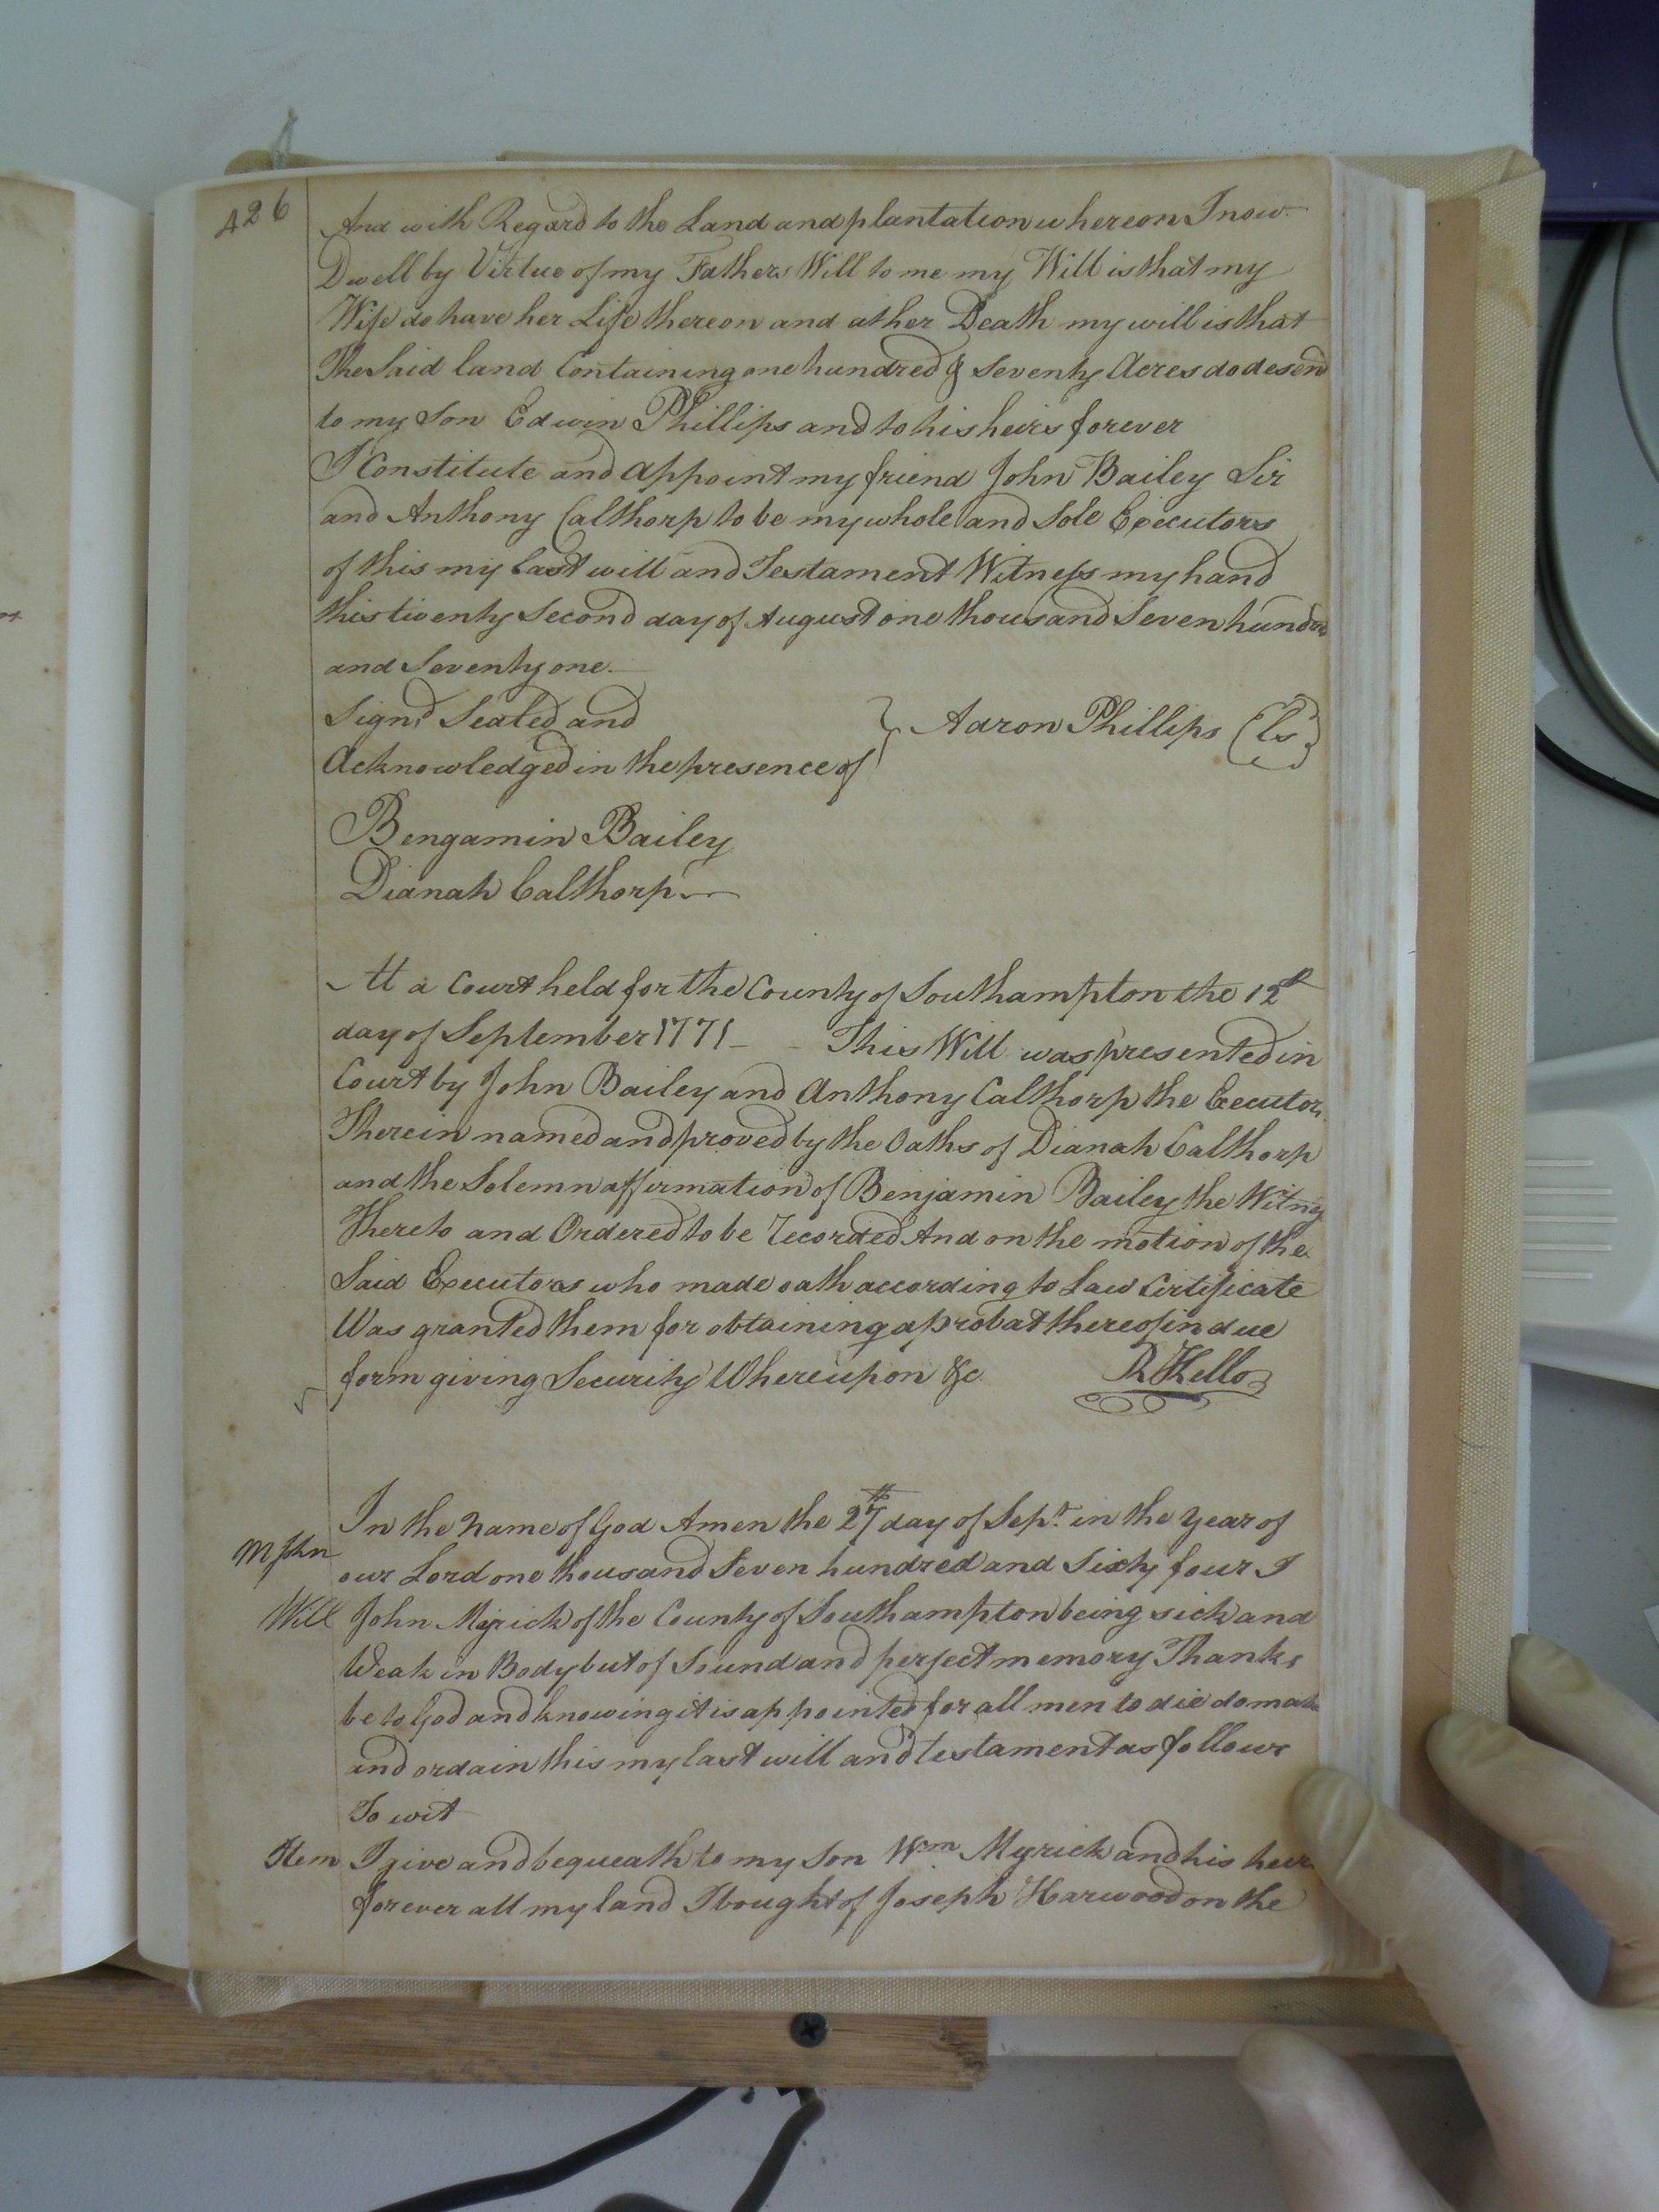 426
And with Regard to the Land and plantation whereon I now
Dwell by Virtue of my Fathers Will to me my Will is that my
Wife do have her Life thereon and at her Death my will is that
The Said land Containing one hundred & Seventy Acres do desend
to my Son Edwin Phillips and to his heirs forever
I Constitute and appoint my friend John Bailey Sir
and Anthony Calthorp to be my whole and Sole Executors
of this my Last will and Testament Witness my hand
this twenty Second day of August one thousand Seven hundred
and Seventy one
Signd Sealed and
Acknowledged in the presence of } Aaron Phillips (Ls)
Bengamin Bailey
Dianah Calthorp
At a Court held for the County of Southampton the 12th
day of September 1771 This Will was presented in
Court by John Bailey and Anthony Calthorp the Eecutors
Therein named and proved by the Oaths of Dianah Calthorp
and the Solemn affirmation of Benjamin Bailey the Witness
Thereto and Ordered to be recorded And on the motion of the
Said Executors who made oath according to Law Certificate
Was granted them for obtaining a probat thereof in due
form giving Security Whereupon &c. R Kello
In the Name of God Amen the 27th day of Sept. in the Year of
our Lord one thousand Seven hundred and Sixty four I
M John
Will John Myrick of the County of Southampton being sick and
Weak in Body but of Sound and perfect memory Thanks
be to God and knowing it is appointed for all men to die do make
and ordain this my last will and testament as follows
To wit
Item I give and bequeath to my Son Wm Myrick and his heirs
forever all my land I bought of Joseph Harwood on the